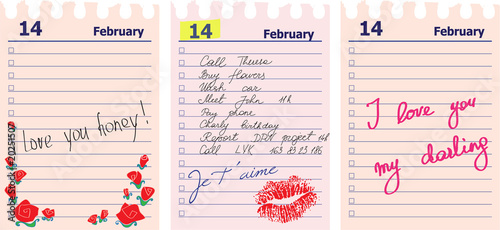 14 February
Love you honey!
14 February
Call Theresa
Buy flavors
Wash car
Meet John 11h
Pay phone
Charly birthday
Report DFA project 14h
Call LVK 163 8313 185
Je t'aime
14 February
I love you
my darling